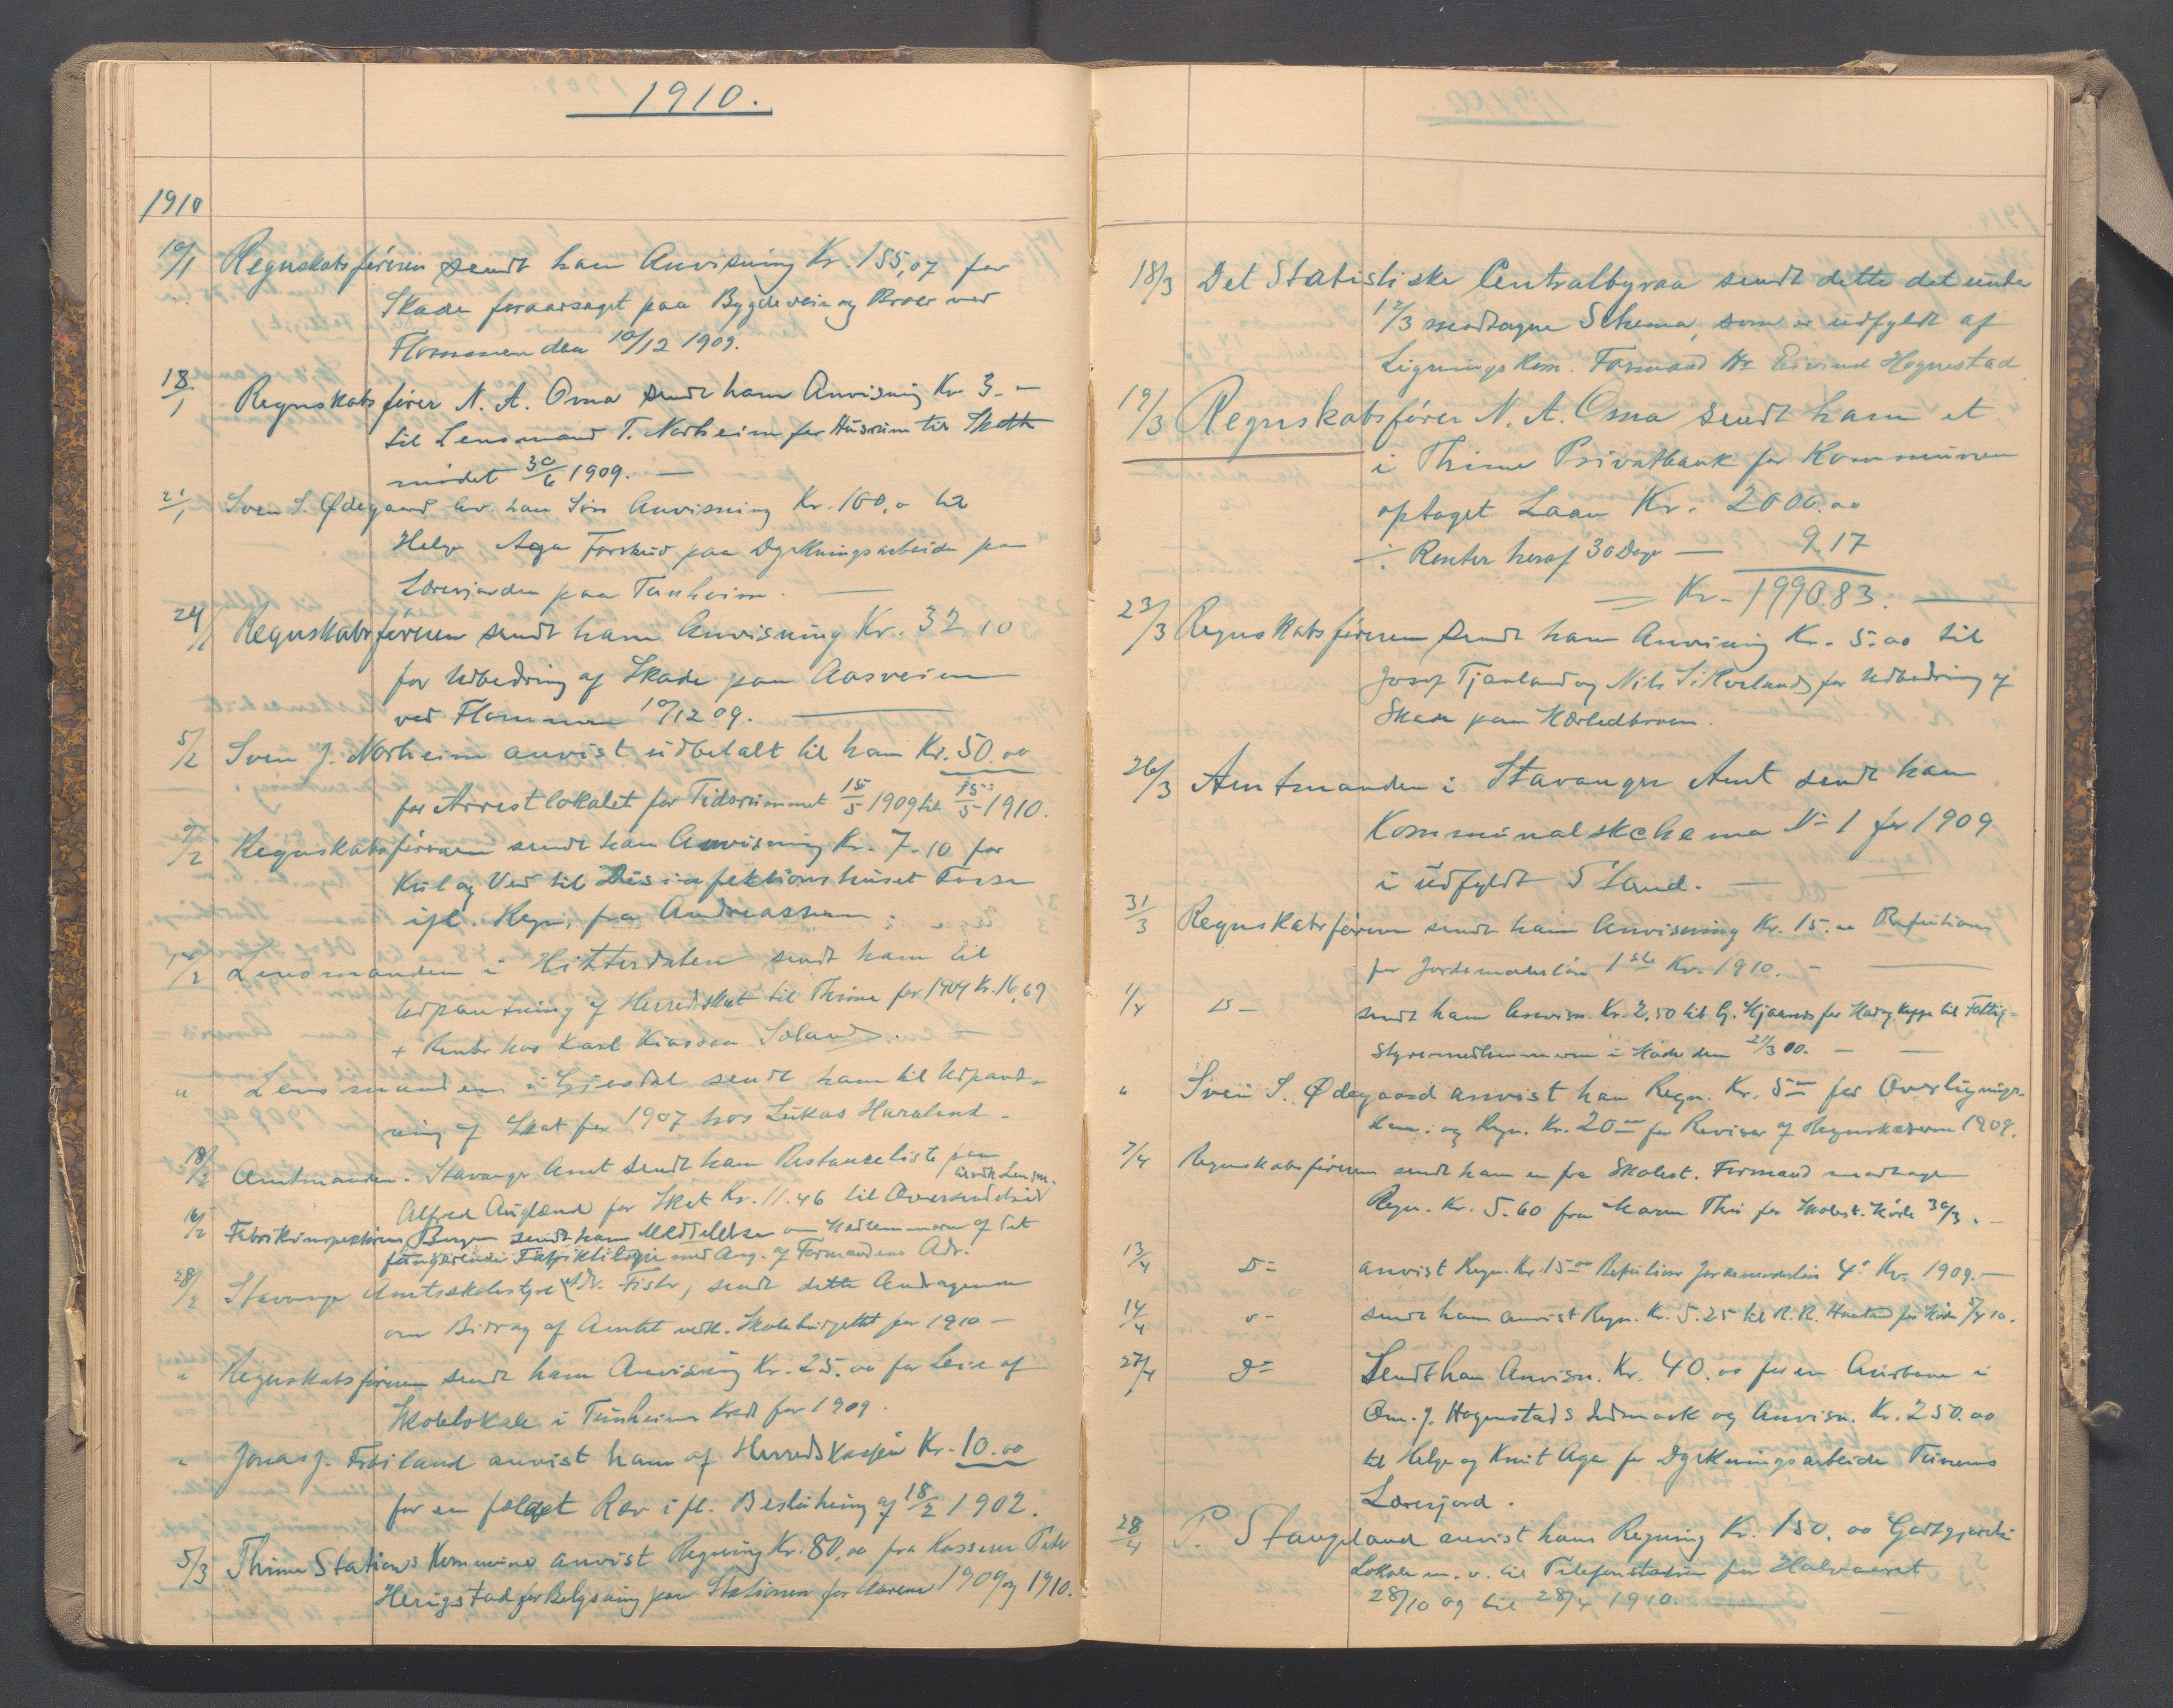 1910.
1910
10/1 Regnskabsføreren sendt ham Anvisning Kr. 155,07 for
Skade foraarsaget paa Bygdeveie og Broer ved
Flommen den 10/12 1909.
18/1 Regnskabsfører N. A. Oma sendt ham Anvisning Kr 3.-
til Lensmand T. Norheim for Husrum til Skatte
mødet 30/6 1909. -
21/1 Sven S. Ødegaard Anvisning Kr. 100,0 til
Helge Aga Forskud paa Dyrkningsarbeide paa
Lærerjorden paa Tunheim. -
24/1 Regnskabsføreren sendt ham Anvisning Kr. 32,10
for Udbedring af Skade paa Aasveien
ved Flommen 10/12 09. -
5/2 Sven J. Norheim anvist udbetalt til ham Kr. 50.00
for Arrestlokalet for Tidsrummet 15/5 1909 til 15/5 1910.
9/2 Regnskabsføreren sendt ham Anvisning Kr. 7.10 for
Kul og Ved til Disinfektionshuset
ifl. Regn. fra Andreassen.
Lensmanden i Hitterdalen sendt ham til
Udpantning af Herredskat til Thime for 1909 Kr. 16,69
+ Renter hos Karl Soland.
" Lensmanden i Gjesdal sendt ham til Udpant-
ning af Skat for 1907 hos Lukas Haraland -
18/2 Amtmanden i Stavanger Amt sendt ham Restanceliste paa
Alfred Auglænd for Skat Kr. 11.46 til Oversendelse
16/2 Fabrikinspektøren Bergen sendt ham Meddelelse om Medlemmerne af det
fungerende Fabriktilsyn med Ang. af Formandens Adr.
28/2 Stavanger Amtsskolestyre Adr. Fister, sendt dette Andragende
om Bidrag af Amtet vedk. Skolebudgettet for 1910 -
" Regnskabsføreren sendt ham Anvisning Kr. 25.00 for Leie af
Skolelokale i Tunheim Kreds for 1909.
" Jonas J. Frøiland anvist ham af Herredskassen Kr. 10.00
for en fælget Ræv ifl. Beslutning af 18/2 1902.
5/3 Thime Stations Kommune anvist Regning Kr. 80,00 fra Kasserer Peter
Herigstad for Belysning paa Stationen for Aarene 1909 og 1910.
18/3 Det Statistiske Centralbyraa sendt dette det under
12/3 modtagne Schema, som er udfyldt af
Lignings Kom. Formand Hr Eivind Hognestad
19/3 Regnskabsfører N. A. Oma sendt ham et
i Thime Privatbank for Kommunen
optaget Laan Kr. 2000.00
÷ Renter heraf 30 Dage - 9 17
= Kr. 1990.83. -
23/3 Regnskabsføreren sendt ham Anvisning Kr. 5.00 til
Josef Tjenland og Nils for Udbedring af
Skade paa
26/3 Amtmanden i Stavanger Amt sendt ham
Kommunalskehema No 1 for 1909
i udfyldt Stand. -
31/3 Regnskabsføreren sendt ham Anvisning Kr. 15.00 Refution
for Jordemoderløn 1ste Kv. 1910. -
1/4 D- sendt ham Anvisn. Kr. 2,50 til G. Hjaand for til Fattig-
styremedlemmerne i Møde den
" Sven S. Ødegaard anvist ham Regn. Kr. 5 00 for Overlignings-
kom. og Regn. Kr. 20 00 for Revisor af Regnskaberne 1909.
7/4 Regnskabsføreren sendt ham en fra Skolest. Formand modtagen
Regn. Kr. 5.60 fra Maren Thu for Skolest. Møde 30/3. -
13/4 D= anvist Regn. Kr. 15 00 Refution Jordemoderløn 4' Kv. 1909. -
14/4 D- sendt ham anvist Regn. Kr. 5.25 til R. R. Haaland for Møde 5/4 10.
27/4 D= Sendt ham Anvisn. Kr. 40.00 for en i
Om. J. Hognestads Udmark og Anvisn. Kr. 250.00
til Helge og Knut Aga for Dyrkningsarbeide Tunems
Lærerjord.
28/4 P. Stangeland anvist ham Regning Kr. 150,00 Godtgjørelse
Lokale m. v. til Telefonstation for Halvaaret
28/10 09 til 28/4 1910. -